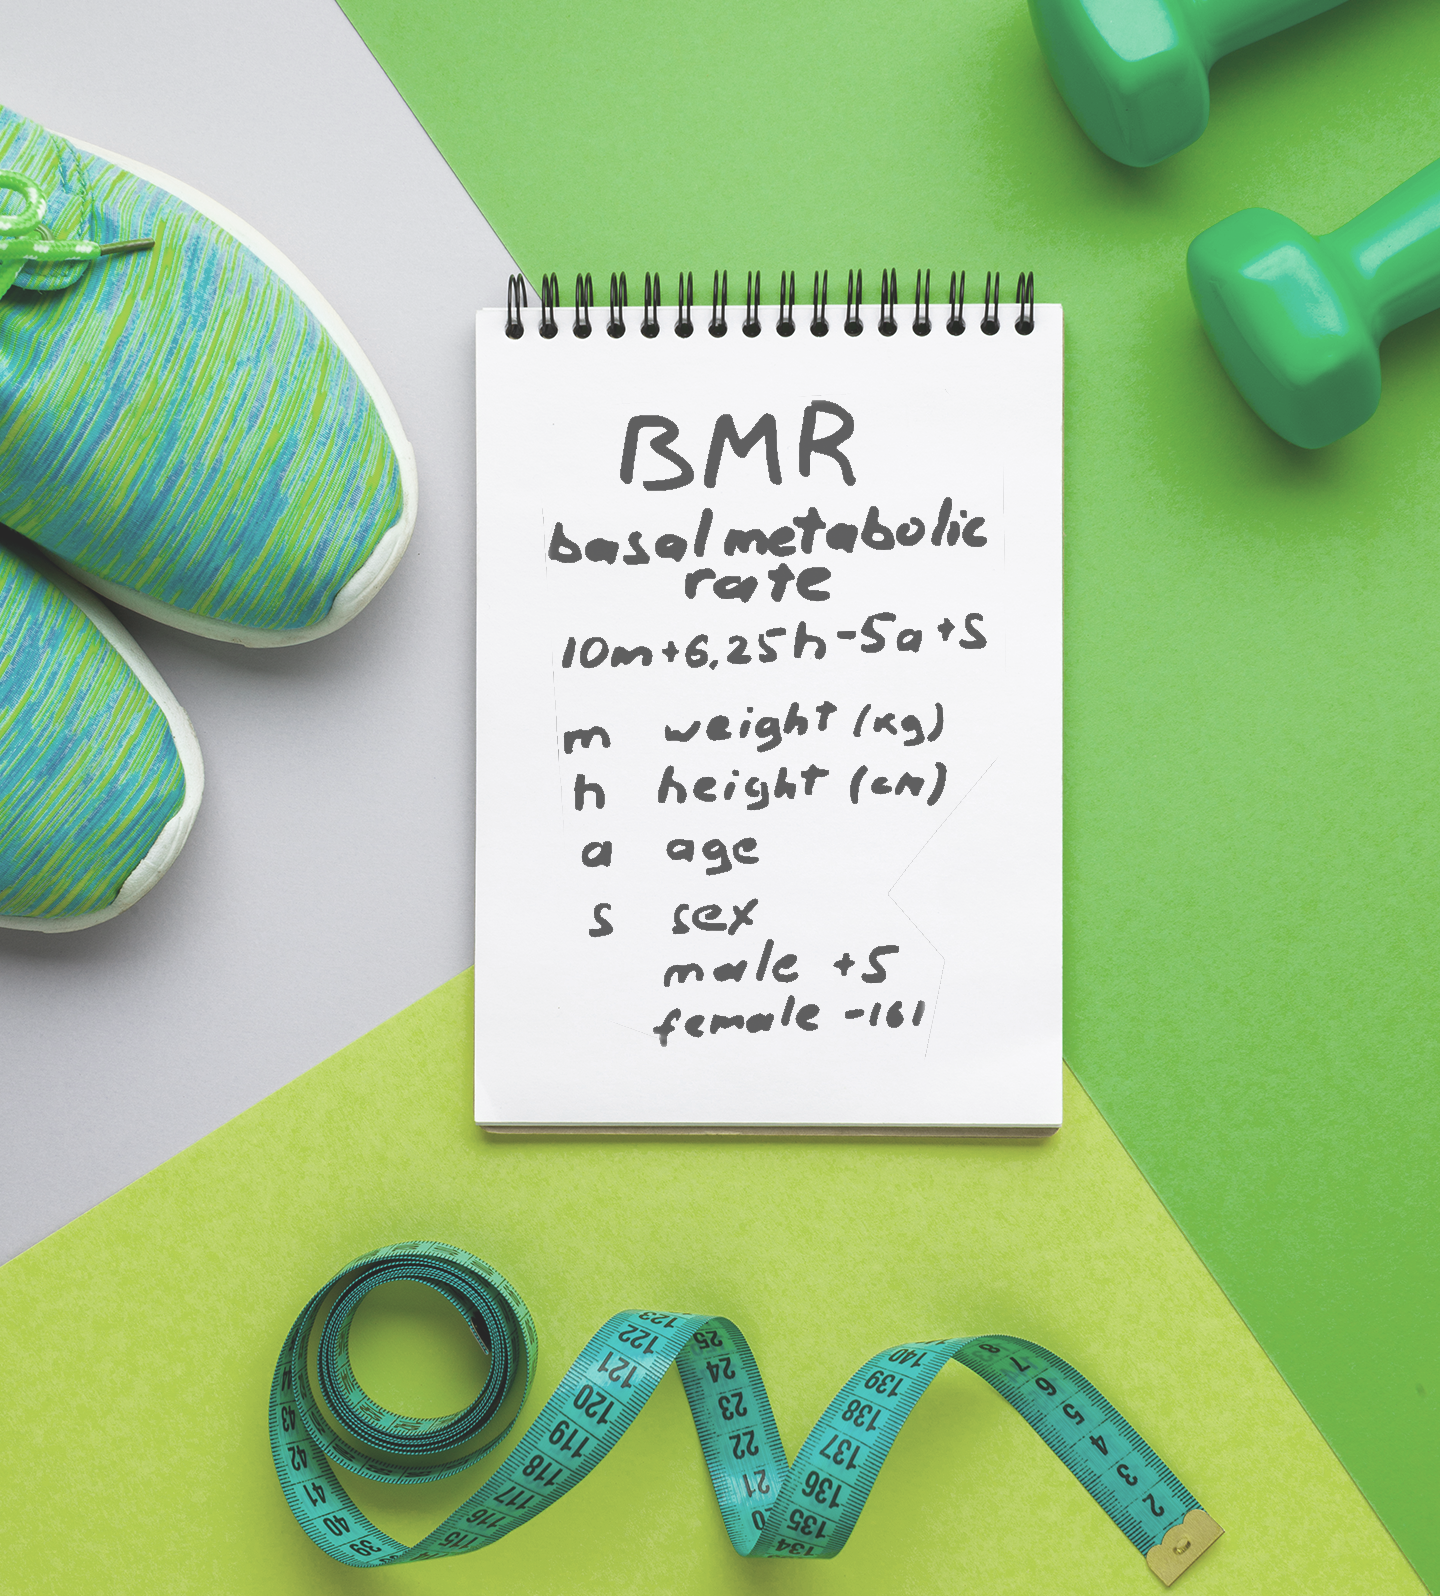 BMR
basal metabolic
rate
10m+6.25h-5a+s
m weight (kg)
h height (cm)
a age
s sex
male +5
female -161
123
122
121
120
119
118
117
116
115
25
24
23
22
21
140
139
138
137
136
135
134
8
7
6
5
4
3
2
43
42
41
40
39